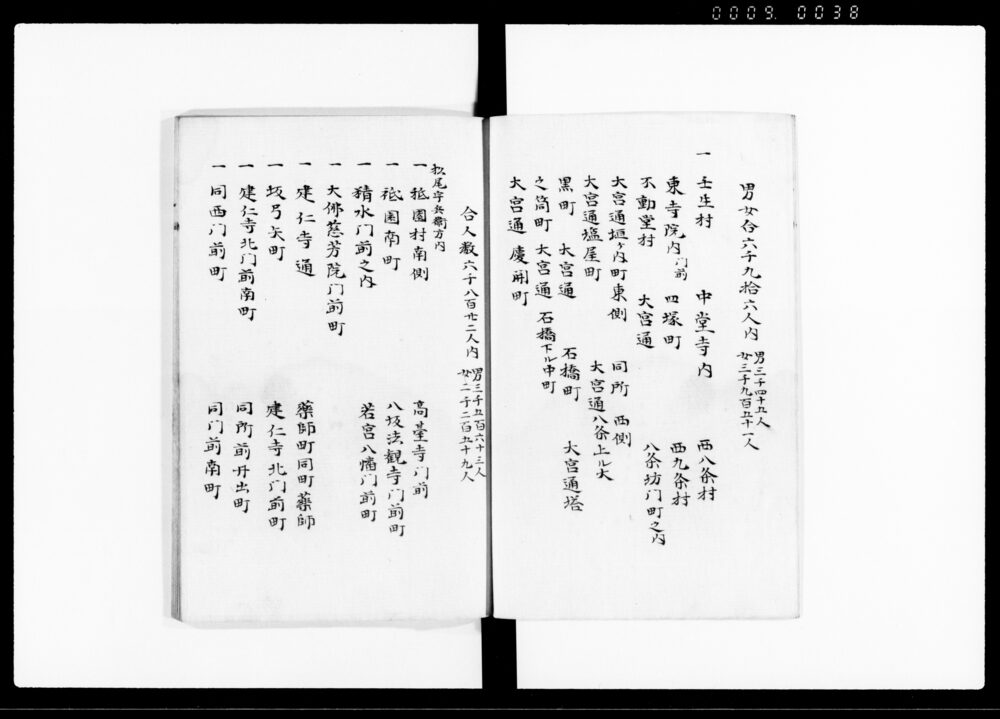 0009. 0038
男女合六千九拾六人内 男三千四十五人
女三千九百五十一人
一 壬生村 中堂寺内 西八条村
東寺院内門前 四塚町 西九条村
不動堂村 大宮通 八条坊門町之内
大宮通垣ヶ内町東側 同所 西側
大宮通塩屋町 大宮通八条上ル大
黒町 大宮通 石橋町 大宮通塔
之筒町 大宮通 石橋下ル中町
大宮通 慶開町
合人数六千八百廿二人内 男三千五百六十三人
女二千二百五十九人
松尾宇兵衛方内
一 祗園村南側 高臺寺門前
一 祗園南町 八坂法観寺門前町
一 清水門前之内 若宮八幡門前町
一 大佛慈芳院門前町
一 建仁寺通 藥師町同町藥師
一 坂弓矢町 建仁寺北門前町
一 建仁寺北門前南町 同所前丹出町
一 同西門前町 同門前南町